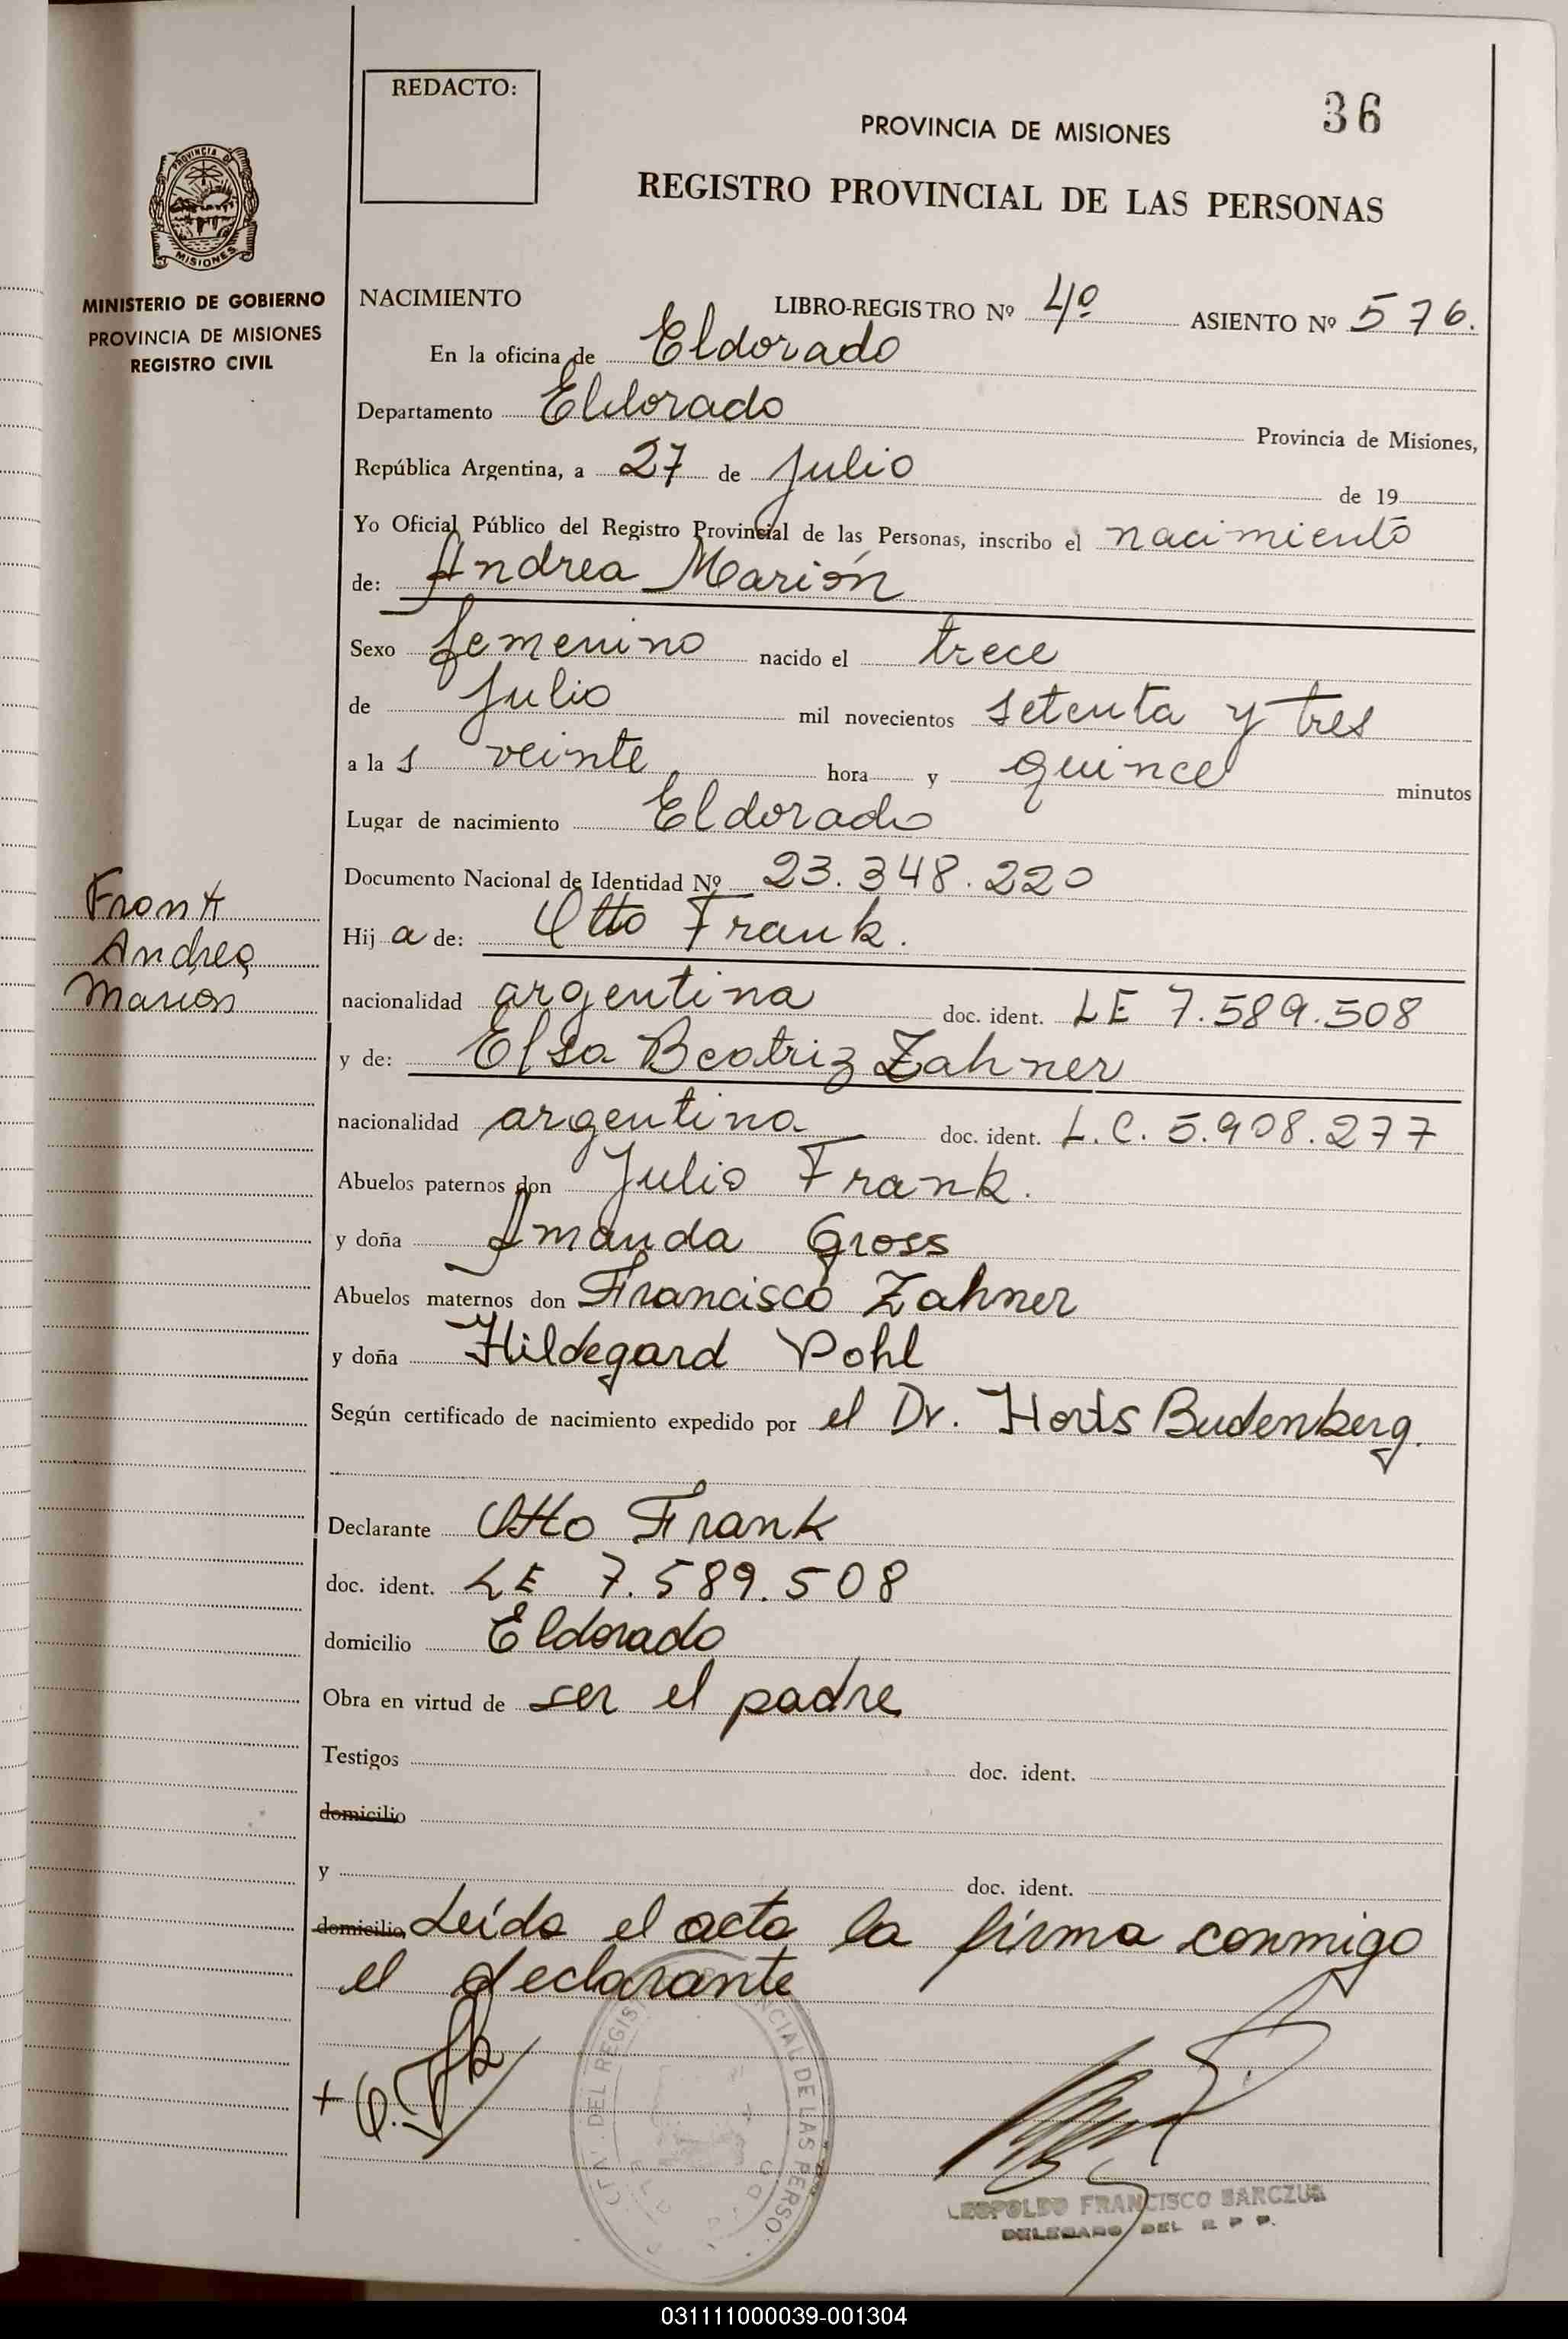 REDACTO:
36
PROVINCIA DE MISIONES
REGISTRO PROVINCIAL DE LAS PERSONAS
PROVINCIA DE
MISIONES
MINISTERIO DE GOBIERNO
PROVINCIA DE MISIONES
REGISTRO CIVIL
NACIMIENTO LIBRO-REGISTRO Nº 4º ASIENTO Nº 576.
En la oficina de Eldorado
Departamento Eldorado Provincia de Misiones,
República Argentina, a 27 de Julio de 19
Yo Oficial Público del Registro Provincial de las Personas, inscribo el nacimiento
de: Andrea Marión
Sexo femenino nacido el trece
de Julio mil novecientos setenta y tres
a la s veinte hora y quince minutos
Lugar de nacimiento Eldorado
Documento Nacional de Identidad Nº 23.348.220
Frank
Andrea
Marion
Hij a de: Otto Frank.
nacionalidad argentina doc. ident. LE 7.589.508
y de: Elsa Beatriz Zahner
nacionalidad argentina doc. ident. L.C. 5.908.277
Abuelos paternos don Julio Frank.
y doña Amanda Gross
Abuelos maternos don Francisco Zahner
y doña Hildegard Pohl
Según certificado de nacimiento expedido por el Dr. Horts Budenberg.
Declarante Otto Frank
doc. ident. LE 7.589.508
domicilio Eldorado
Obra en virtud de ser el padre
Testigos doc. ident.
domicilio
y doc. ident.
domicilio Leída el acta la firma conmigo
el declarante
DEL REGIS CIAL DE LAS PERSO
LEOPOLDO FRANCISCO SARCZUK
DELEGADO DEL R P P.
031111000039-001304